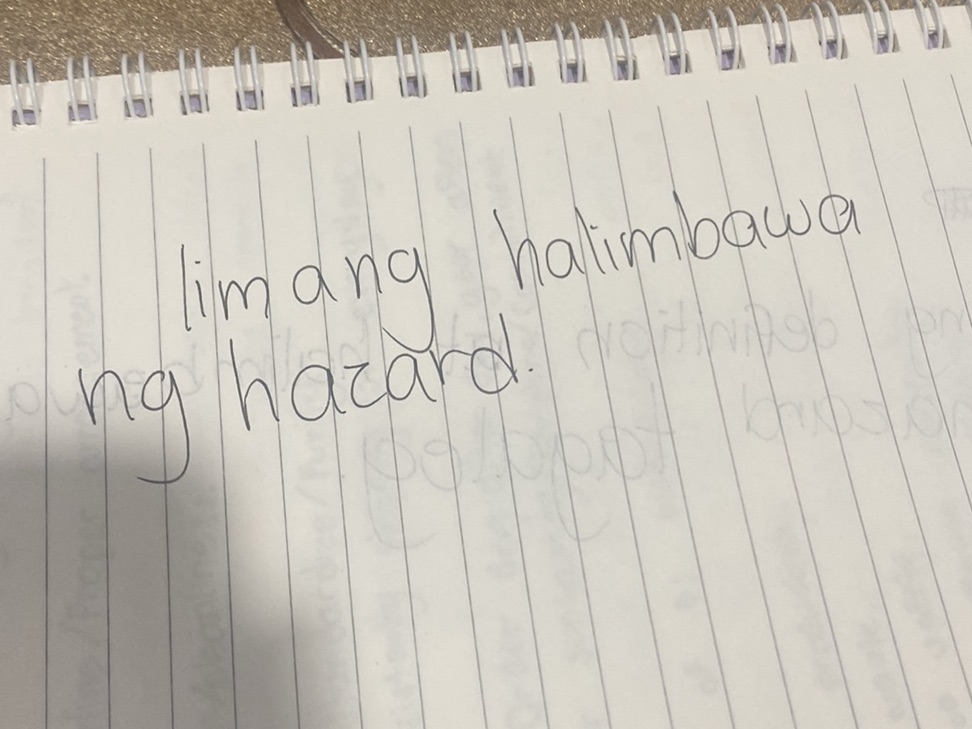 limang halimbawa
ng hazard.